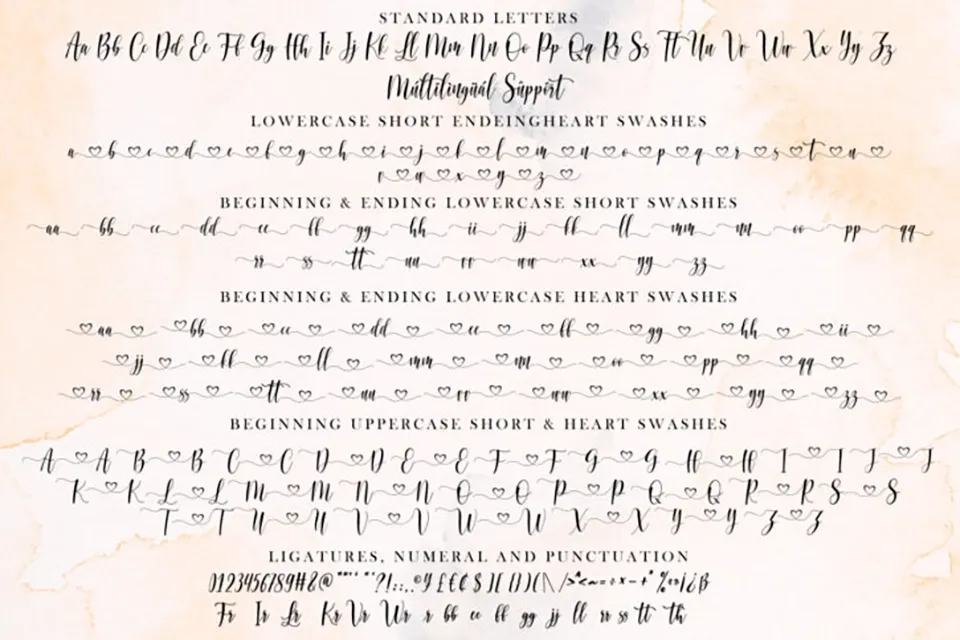 STANDARD LETTERS
Aa Bb Cc Dd Ee Ff Gg Hh Ii Jj Kk Ll Mm Nn Oo Pp Qq Rr Ss Tt Uu Vv Ww Xx Yy Zz
Múltilingüál Süppört
LOWERCASE SHORT ENDEINGHEART SWASHES
a b c d e f g h i j k l m n o p q r s t u
v w x y z
BEGINNING & ENDING LOWERCASE SHORT SWASHES
aa bb cc dd ee ff gg hh ii jj kk ll mm nn oo pp qq
rr ss tt uu vv ww xx yy zz
BEGINNING & ENDING LOWERCASE HEART SWASHES
aa bb cc dd ee ff gg hh ii
jj kk ll mm nn oo pp qq
rr ss tt uu vv ww xx yy zz
BEGINNING UPPERCASE SHORT & HEART SWASHES
A A B B C C D D E E F F G G H H I I J J
K K L L M M N N O O P P Q Q R R S S
T T U U V V W W X X Y Y Z Z
LIGATURES, NUMERAL AND PUNCTUATION
0123456789#&@
Fr Ir Lr Kr Vr Wr r bb cc ll gg jj ll rr ss tt th